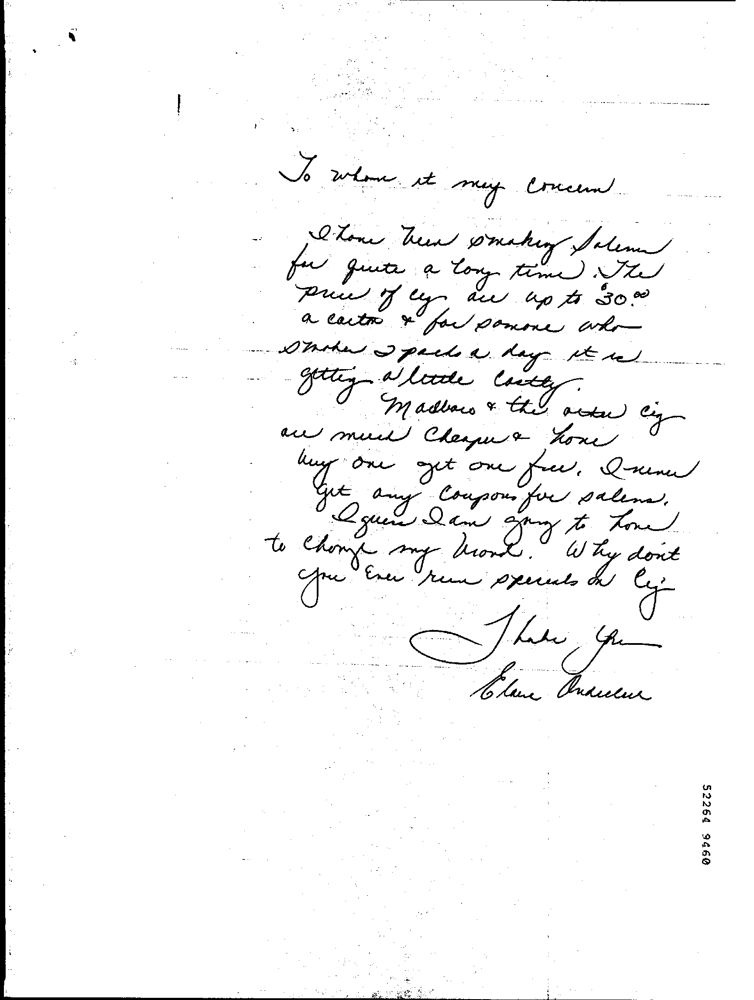 To whom it may concern
I have been smoking Salem
for quite a long time. The
price of cig are up to $30.00
a carton & for somone who
smokes 2 packs a day it is
getting a little costly.
Malboro & the other cig
are much cheaper & have
buy one get one free. I never
get any coupons for salems.
I guess I am going to have
to change my brand. Why don't
you ever run specials on cig
Thank you
Elaine
52264 9460